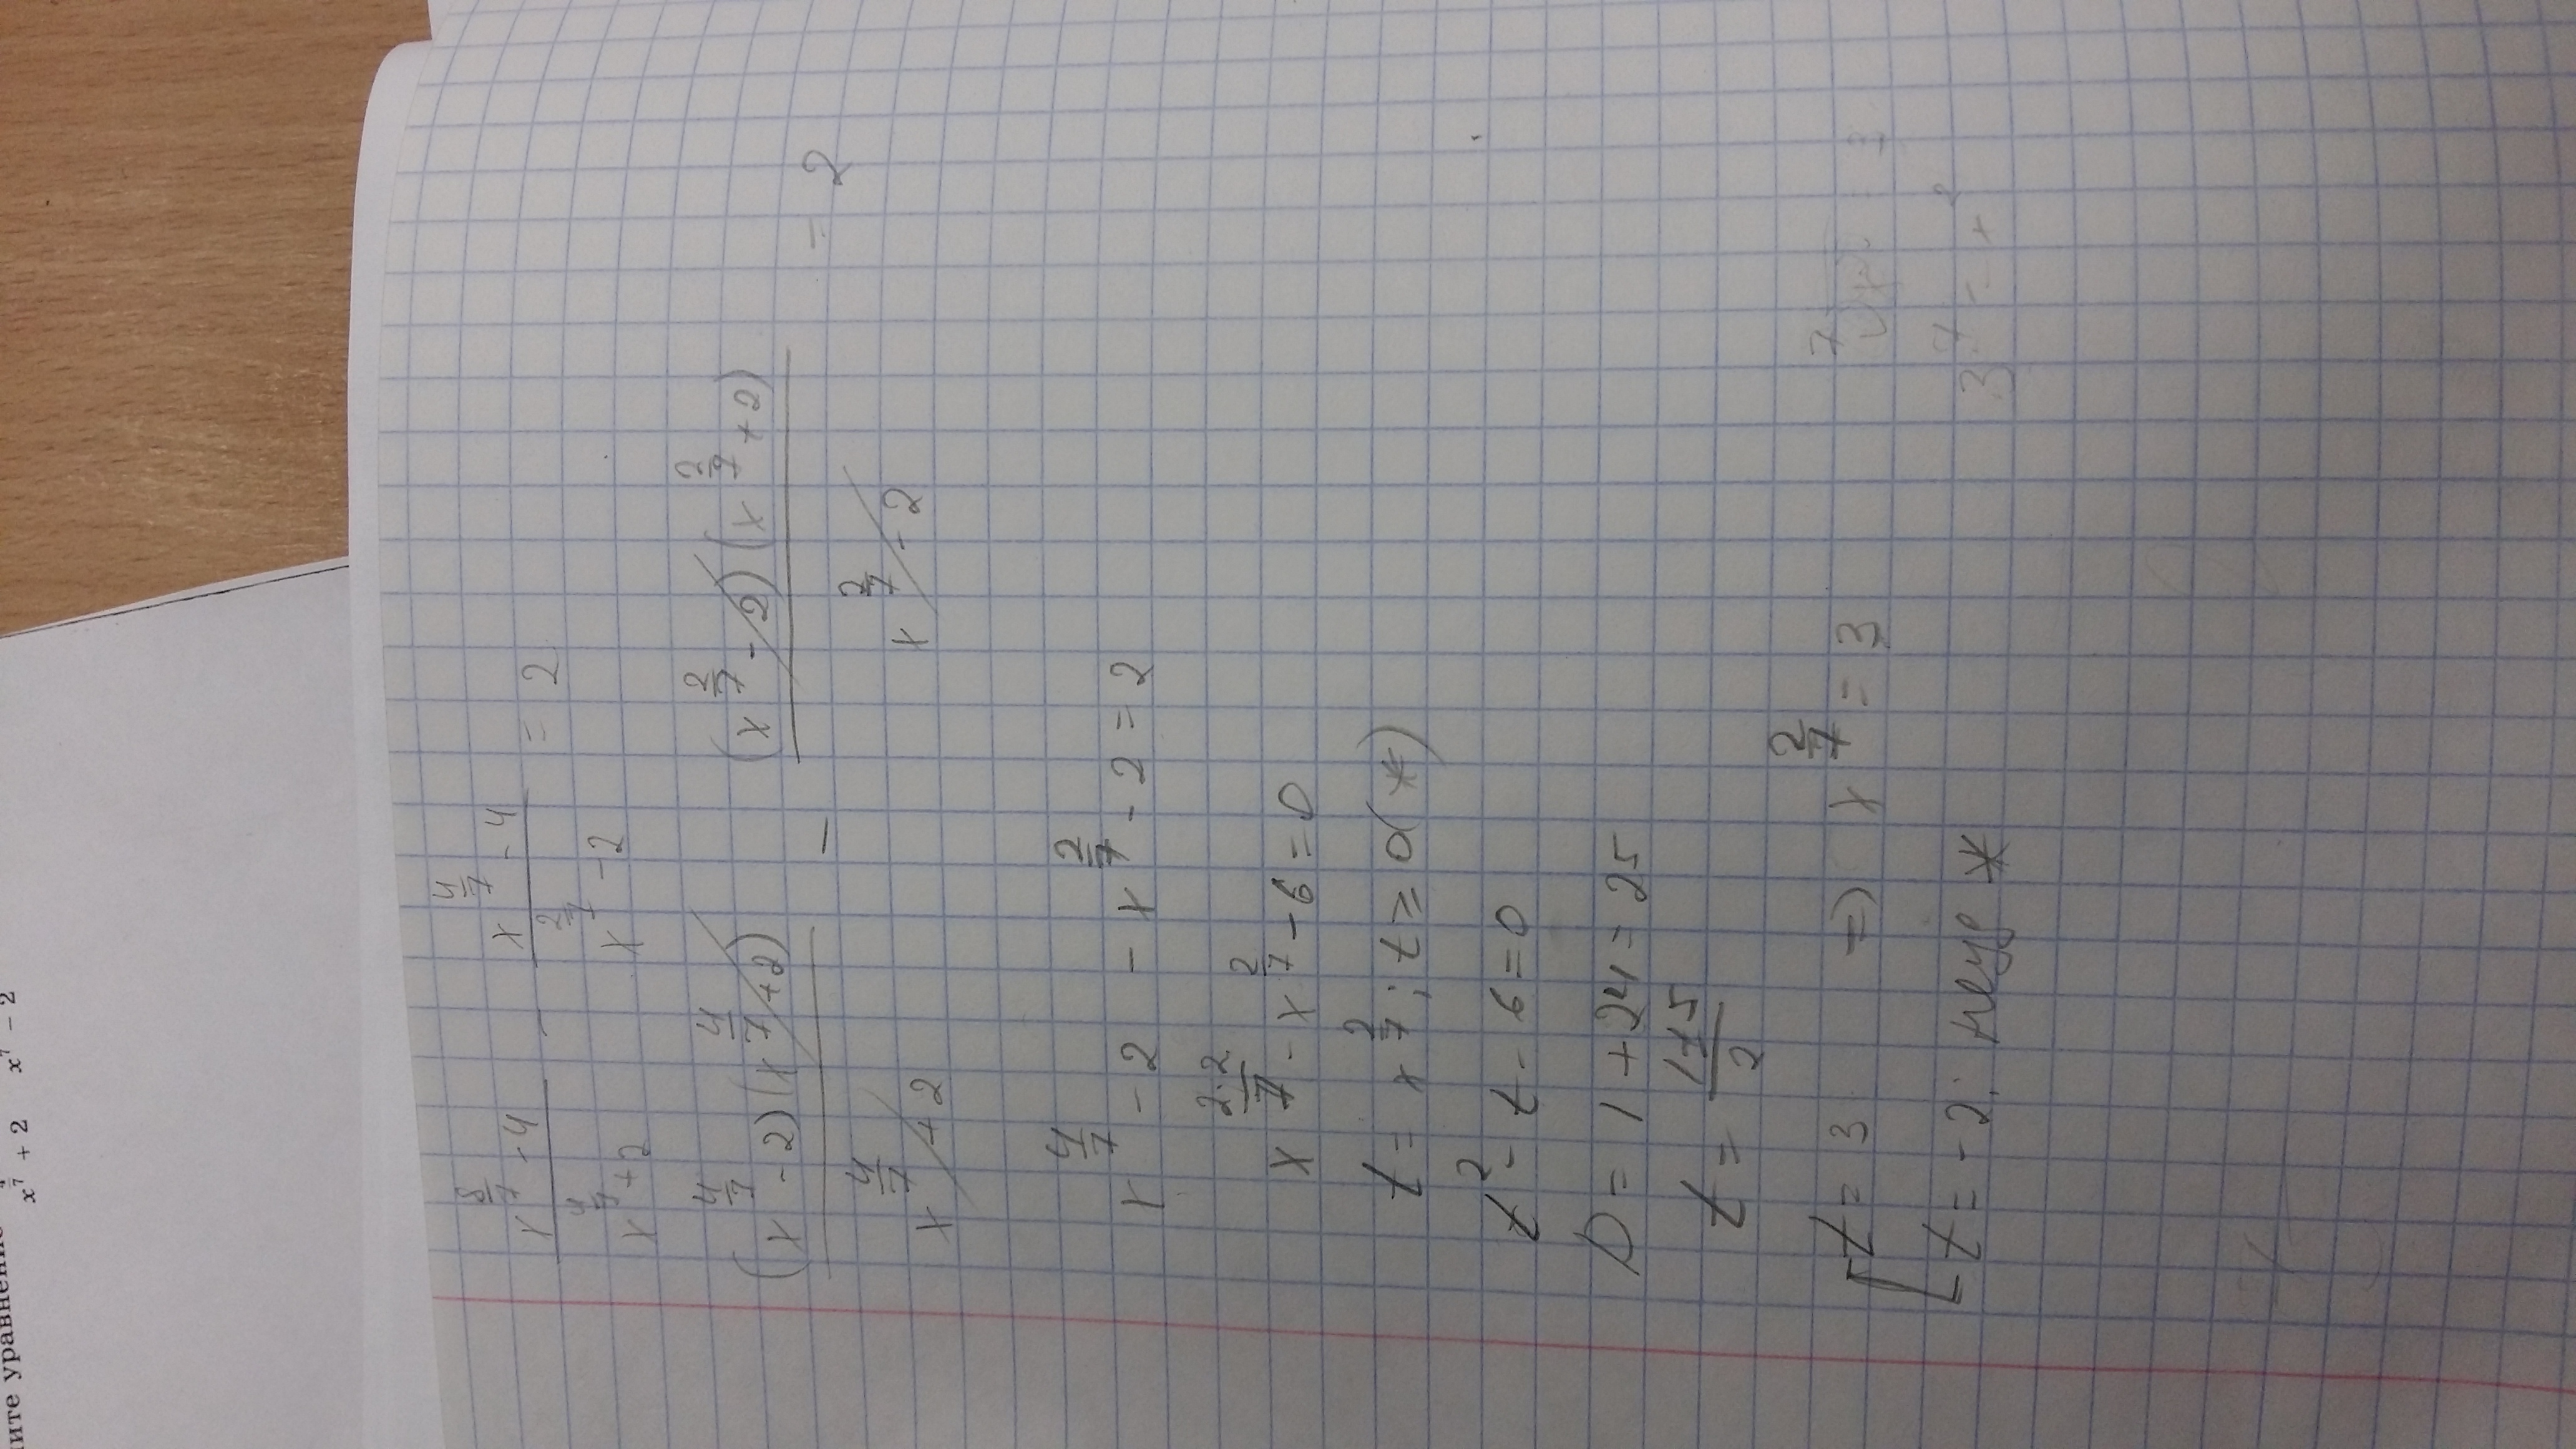 ните уравнение
x^7 + 2 x^7 - 2
(x^(8/7) - 4)/(x^(4/7) + 2) - (x^(4/7) - 4)/(x^(2/7) - 2) = 2
((x^(4/7) - 2)(x^(4/7) + 2))/(x^(4/7) + 2) - ((x^(2/7) - 2)(x^(2/7) + 2))/(x^(2/7) - 2) = 2
x^(4/7) - 2 - x^(2/7) - 2 = 2
x^(2·2/7) - x^(2/7) - 6 = 0
t = x^(2/7); t ≥ 0 (*)
t² - t - 6 = 0
D = 1 + 24 = 25
t = (1±5)/2
[t = 3 ⇒) x^(2/7) = 3
[t = -2; неуд *